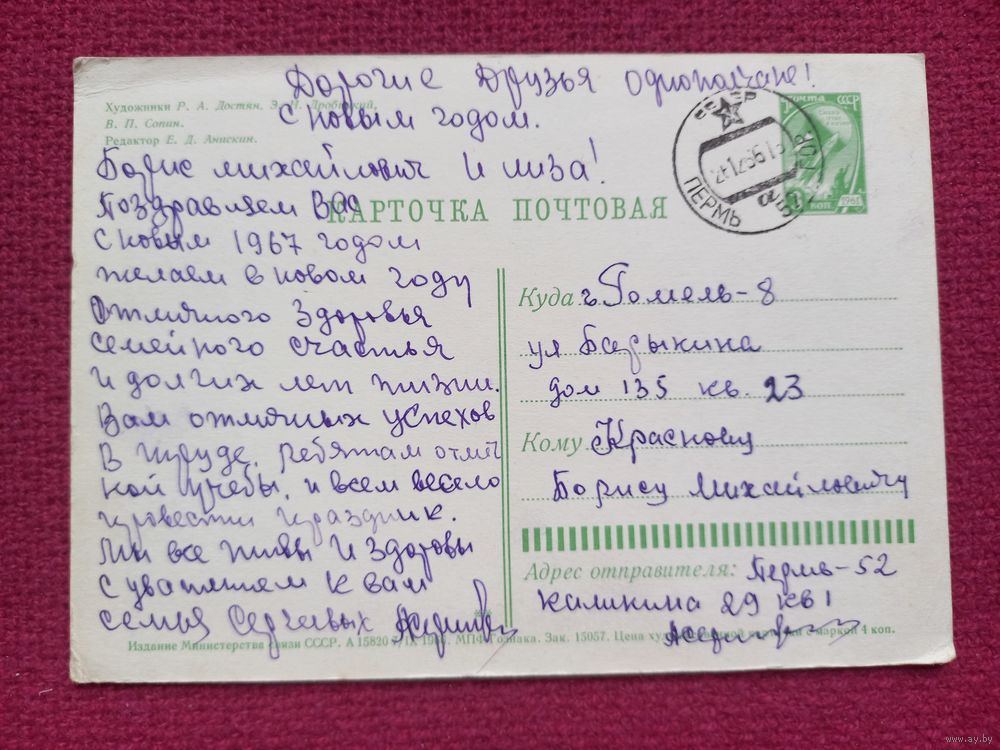 Дорогие Друзья однополчане!
С новым годом.
Художники Р. А. Достян, Э. Н. Дробицкий,
В. П. Сопин.
Редактор Е. Д. Анискин.
Борис михайлович и лиза!
Поздравляем Вас
КАРТОЧКА ПОЧТОВАЯ
С новым 1967 годом
желаем в новом году
отличного здоровья
семейного счастья
и долгих лет жизни.
Вам отличных успехов
в труде, ребятам отлич
ной учебы, и всем весело
провести праздник.
Мы все живы и здоровы
с уважением к вам
семья
ПОЧТА СССР
ПЕРМЬ
Куда г. Гомель-8
ул Барыкина
дом 135 кв. 23
Кому Краснову
Борису Михайловичу
Адрес отправителя: Пермь-52
Калинина 29 кв 1
Издание Министерства связи СССР. А 15820 МПФ Гознака. Зак. 15057. Цена с маркой 4 коп.
www.ay.by